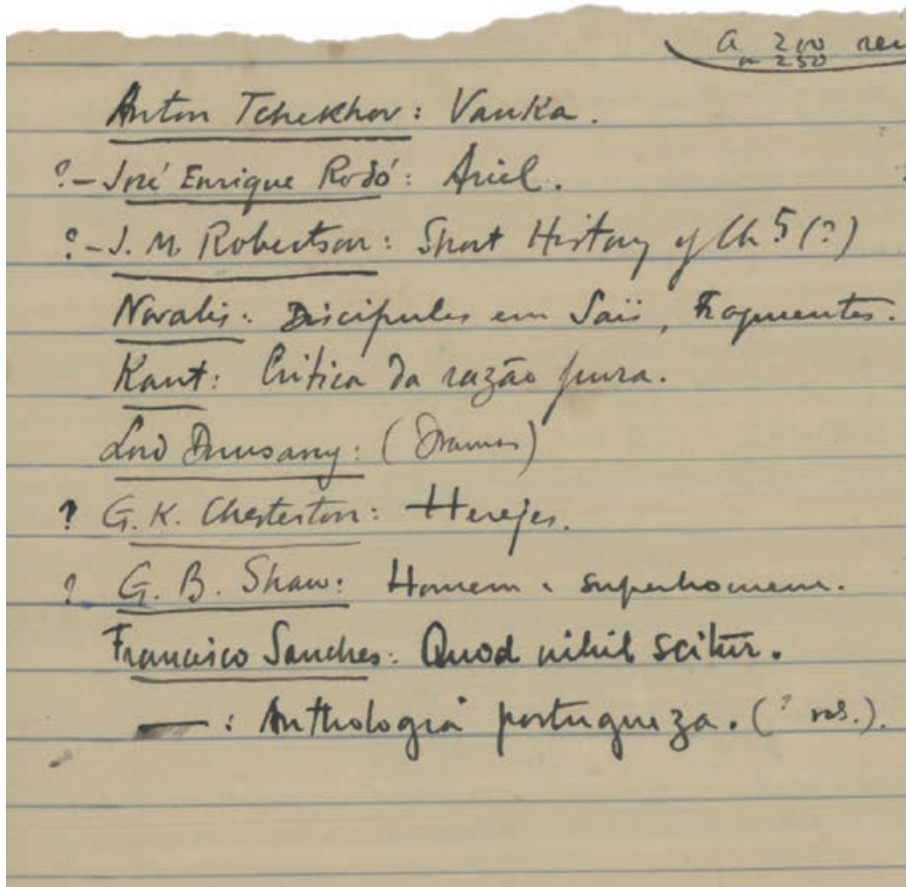 a 200 rei
ou 250
Anton Tchekhov: Vanka.
?-José Enrique Rodó: Ariel.
?-J. M. Robertson: Short History of Ch 5 (?)
Novalis: Discipulos em Saïs, Fragmentos.
Kant: Critica da razão pura.
Lord Dunsany: (Dramas)
? G. K. Chesterton: Herejes.
? G. B. Shaw: Homem e superhomem.
Francisco Sanches: Quod nihil scitur.
—: Anthologia portugueza. (? vols.).